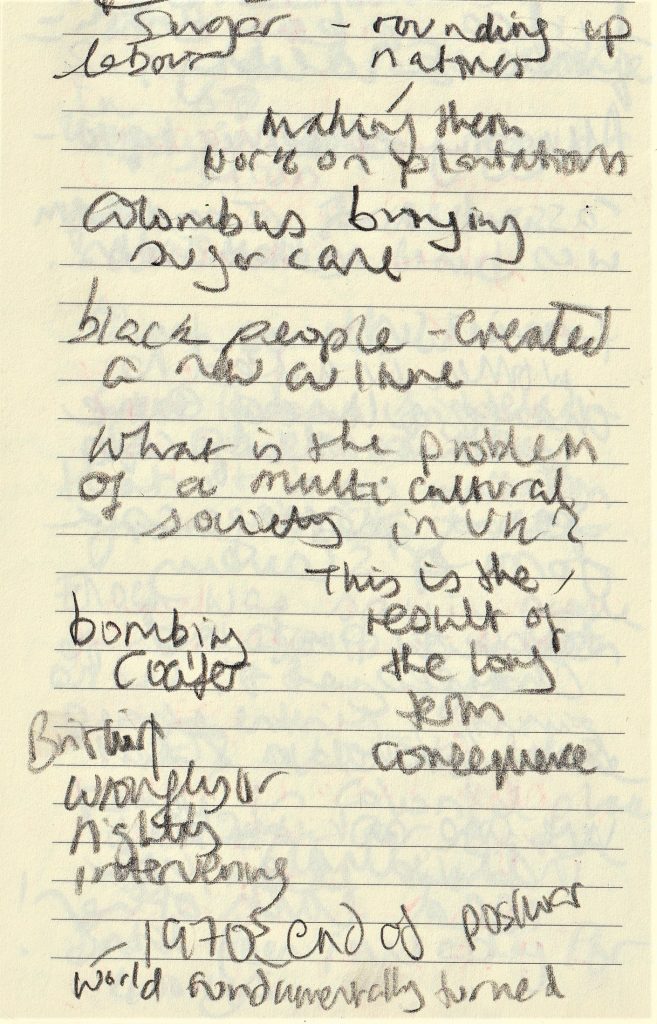 Sugar - rounding up
labour natives
making them
work on plantations
Colombus bringing
sugar cane
black people - created
a new culture
What is the problem
of a multi cultural
society in UK?
This is the
result of
the long
term
consequence
bombing
British
wrongly or
rightly
intervening
- 1970s end of postwar
world fundamentally turned